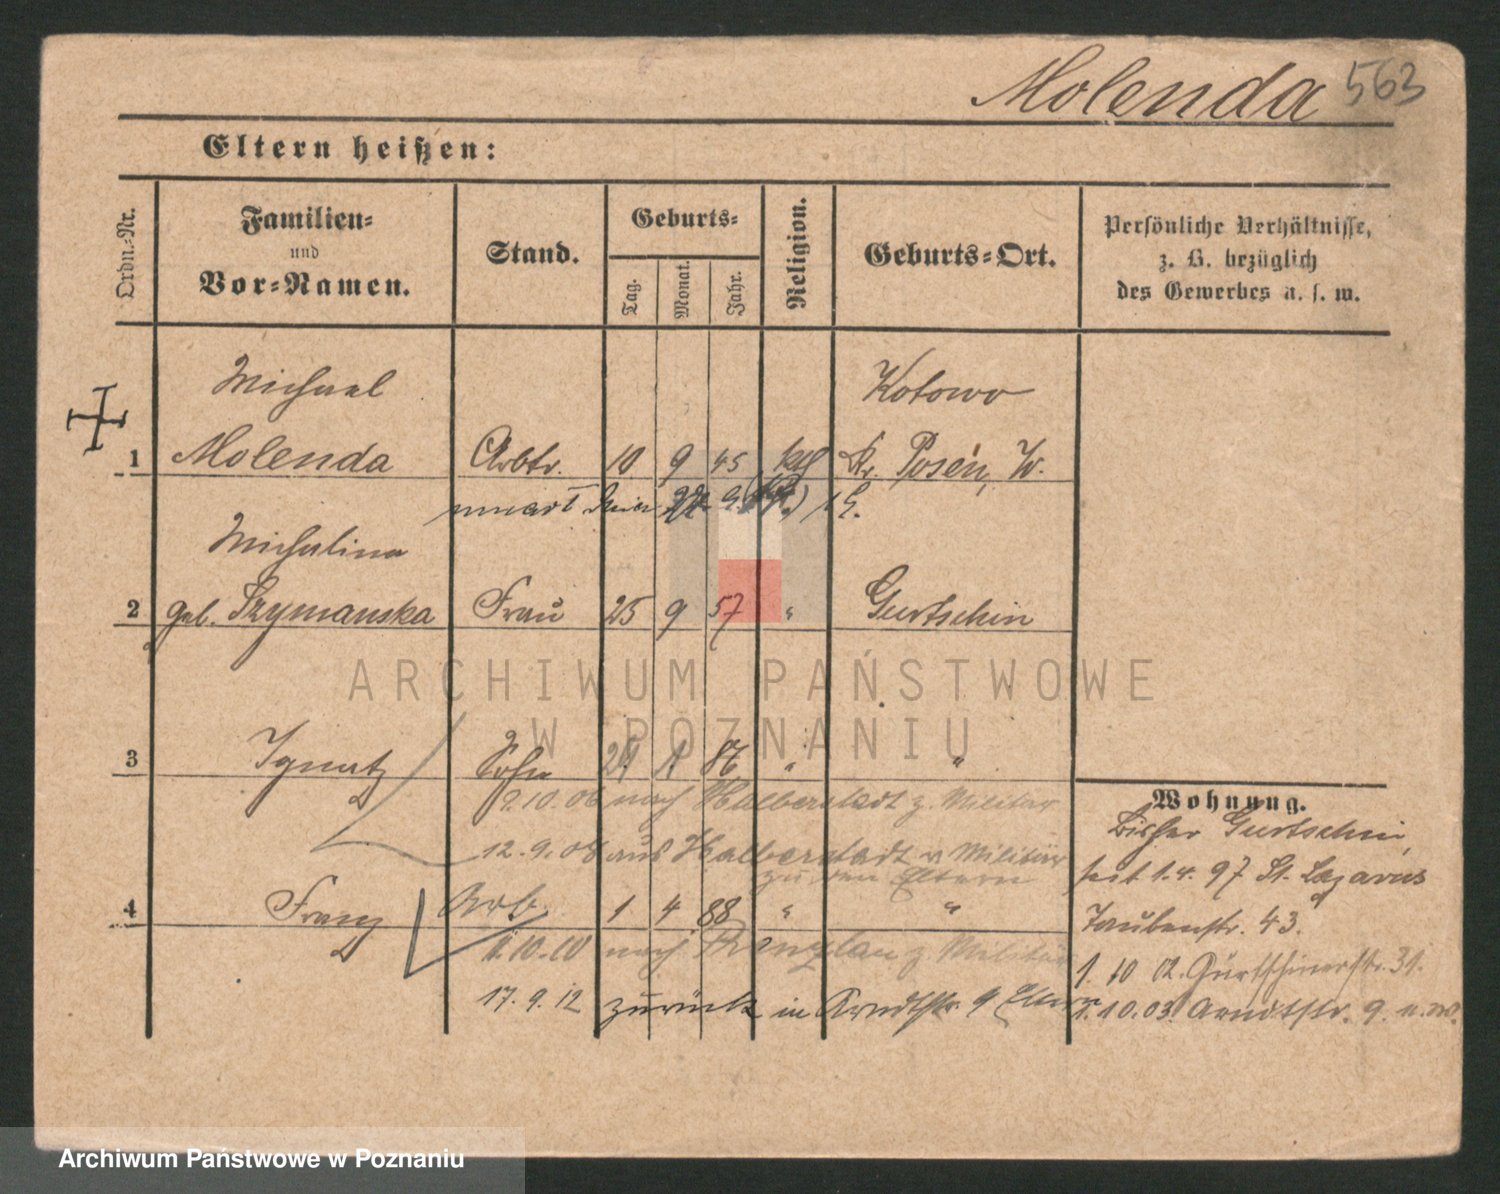 Molenda 563
Eltern heißen:
Ordn.-Nr.
Familien-
und
Vor-Namen.
Stand.
Geburts-
Tag.
Monat.
Jahr.
Religion.
Geburts-Ort.
Persönliche Verhältnisse,
z. B. bezüglich
des Gewerbes u. s. w.
Michael Kotowo
1 Molenda Arbtr. 10 9 45 kth Kr. Posen, W.
Michalina
2 geb. Szymanska Frau 25 9 57 " Gurtschin
ARCHIWUM PAŃSTWOWE
W POZNANIU
3 Ignatz Sohn 1 86 " "
9.10.06 nach Halberstadt z. Militär
12.9.08 aus Halberstadt v. Militär
zu den Eltern
4 Franz Arb. 1 4 88 " "
1.10.10 nach Prenzlau z. Militär
17.9.12 zurück in Arndtstr. 9 Eltern
Wohnung.
Bisher Gurtschin,
seit 1.4.97 St. Lazarus
Taubenstr. 43.
1.10 02. Gurtschinerstr. 31.
1.10.03. Arndtstr. 9.
Archiwum Państwowe w Poznaniu